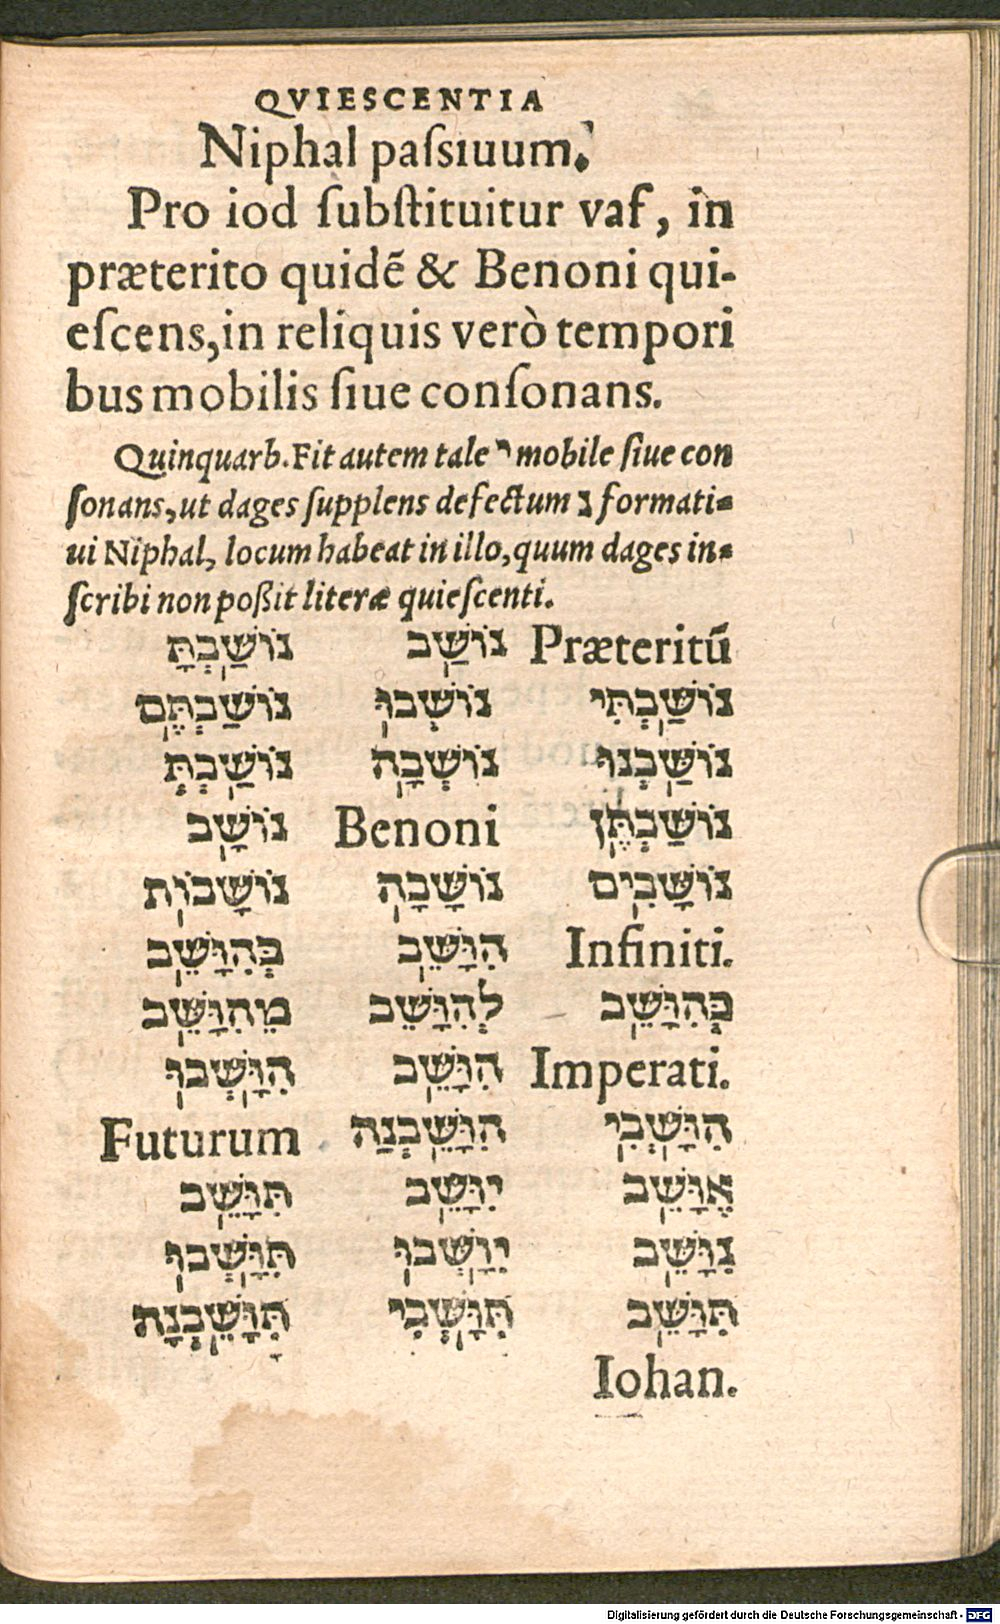 QVIESCENTIA
Niphal paſsiuum.
Pro iod ſubſtituitur vaf, in
præterito quidẽ & Benoni qui-
eſcens, in reliquis verò tempori
bus mobilis ſiue conſonans.
Quinquarb. Fit autem tale ו mobile ſiue con
ſonans, ut dages ſupplens defectum נ formati-
ui Niphal, locum habeat in illo, quum dages in-
ſcribi non poßit literæ quieſcenti.
Præteritũ נוֹשַׁב נוֹשַׁבְתָּ
נוֹשַׁבְתִּי נוֹשְׁבוּ נוֹשַׁבְתֶּם
נוֹשַׁבְנוּ נוֹשְׁבָה נוֹשַׁבְתְּ
נוֹשַׁבְתֶּן Benoni נוֹשָׁב
נוֹשָׁבִים נוֹשָׁבָה נוֹשָׁבוֹת
Infiniti. הִוָּשֵׁב בְּהִוָּשֵׁב
כְּהִוָּשֵׁב לְהִוָּשֵׁב מֵהִוָּשֵׁב
Imperati. הִוָּשֵׁב הִוָּשְׁבוּ
הִוָּשְׁבִי הִוָּשֵׁבְנַה Futurum
אֶוָּשֵׁב יִוָּשֵׁב תִּוָּשֵׁב
נִוָּשֵׁב יִוָּשְׁבוּ תִּוָּשְׁבוּ
תִּוָּשֵׁב תִּוָּשְׁבִי תִּוָּשֵׁבְנָה
Iohan.
Digitalisierung gefördert durch die Deutsche Forschungsgemeinschaft - DFG